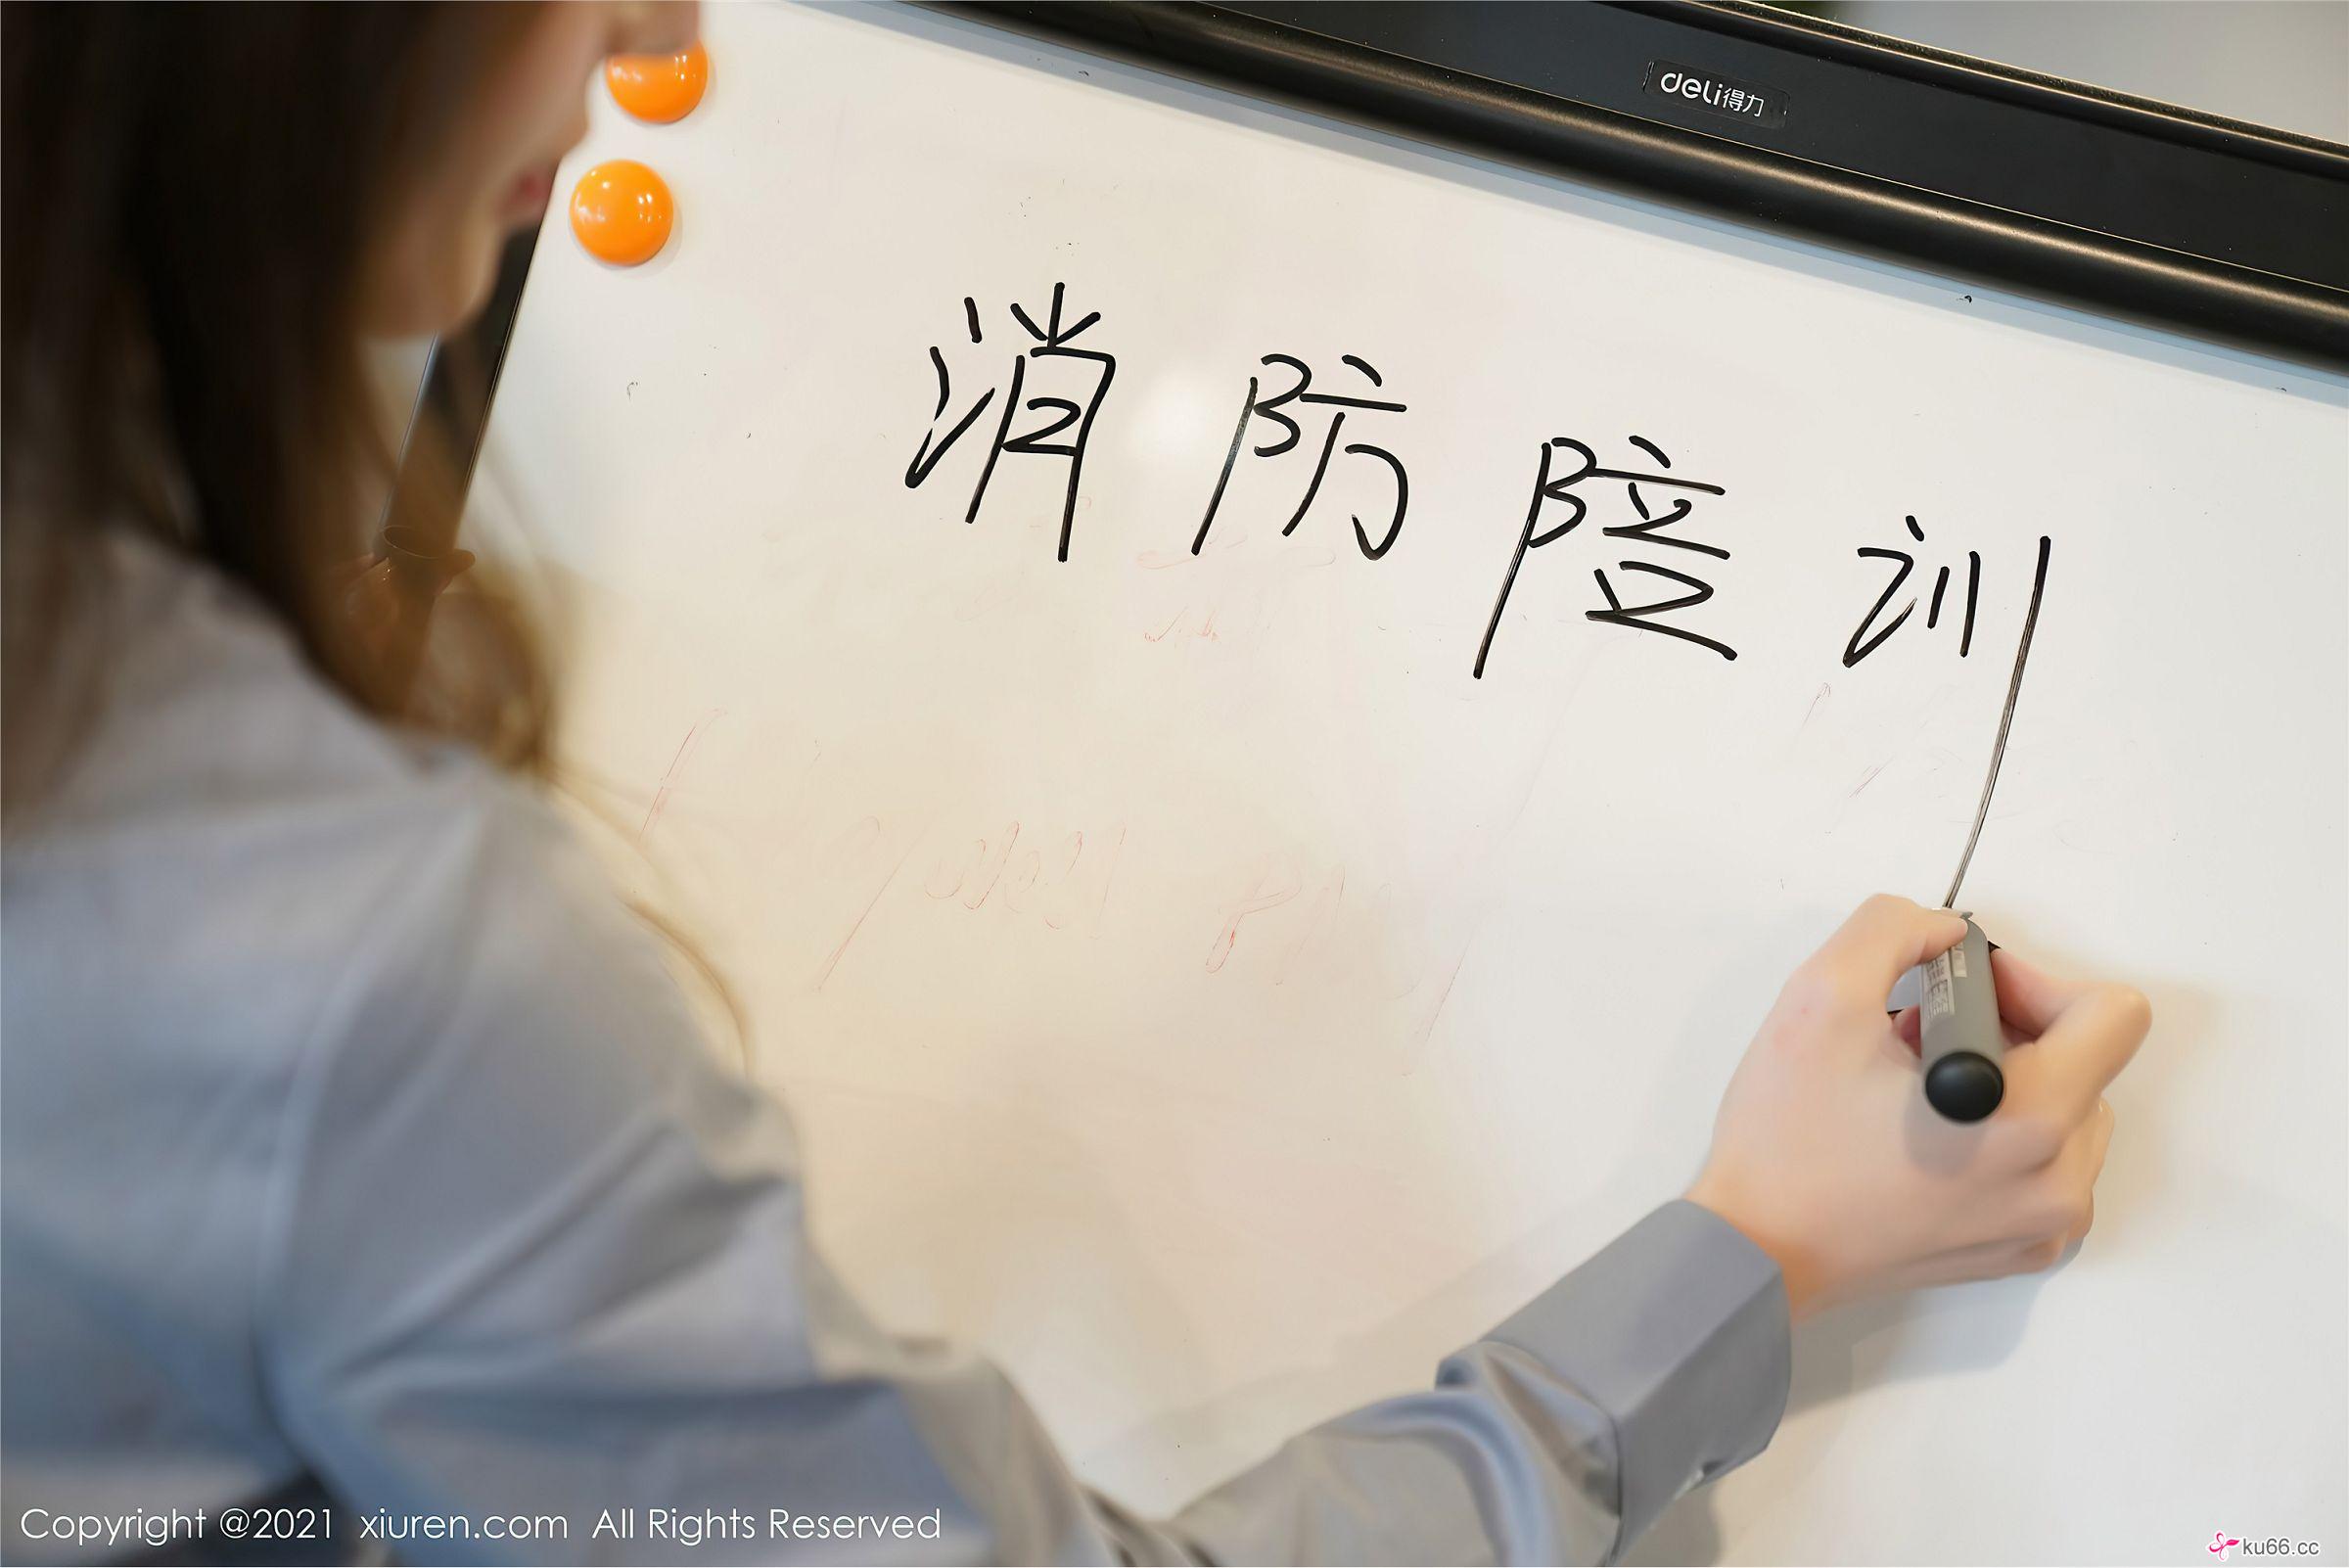 deli得力
消防陪训
Copyright @2021 xiuren.com All Rights Reserved
ku66.cc